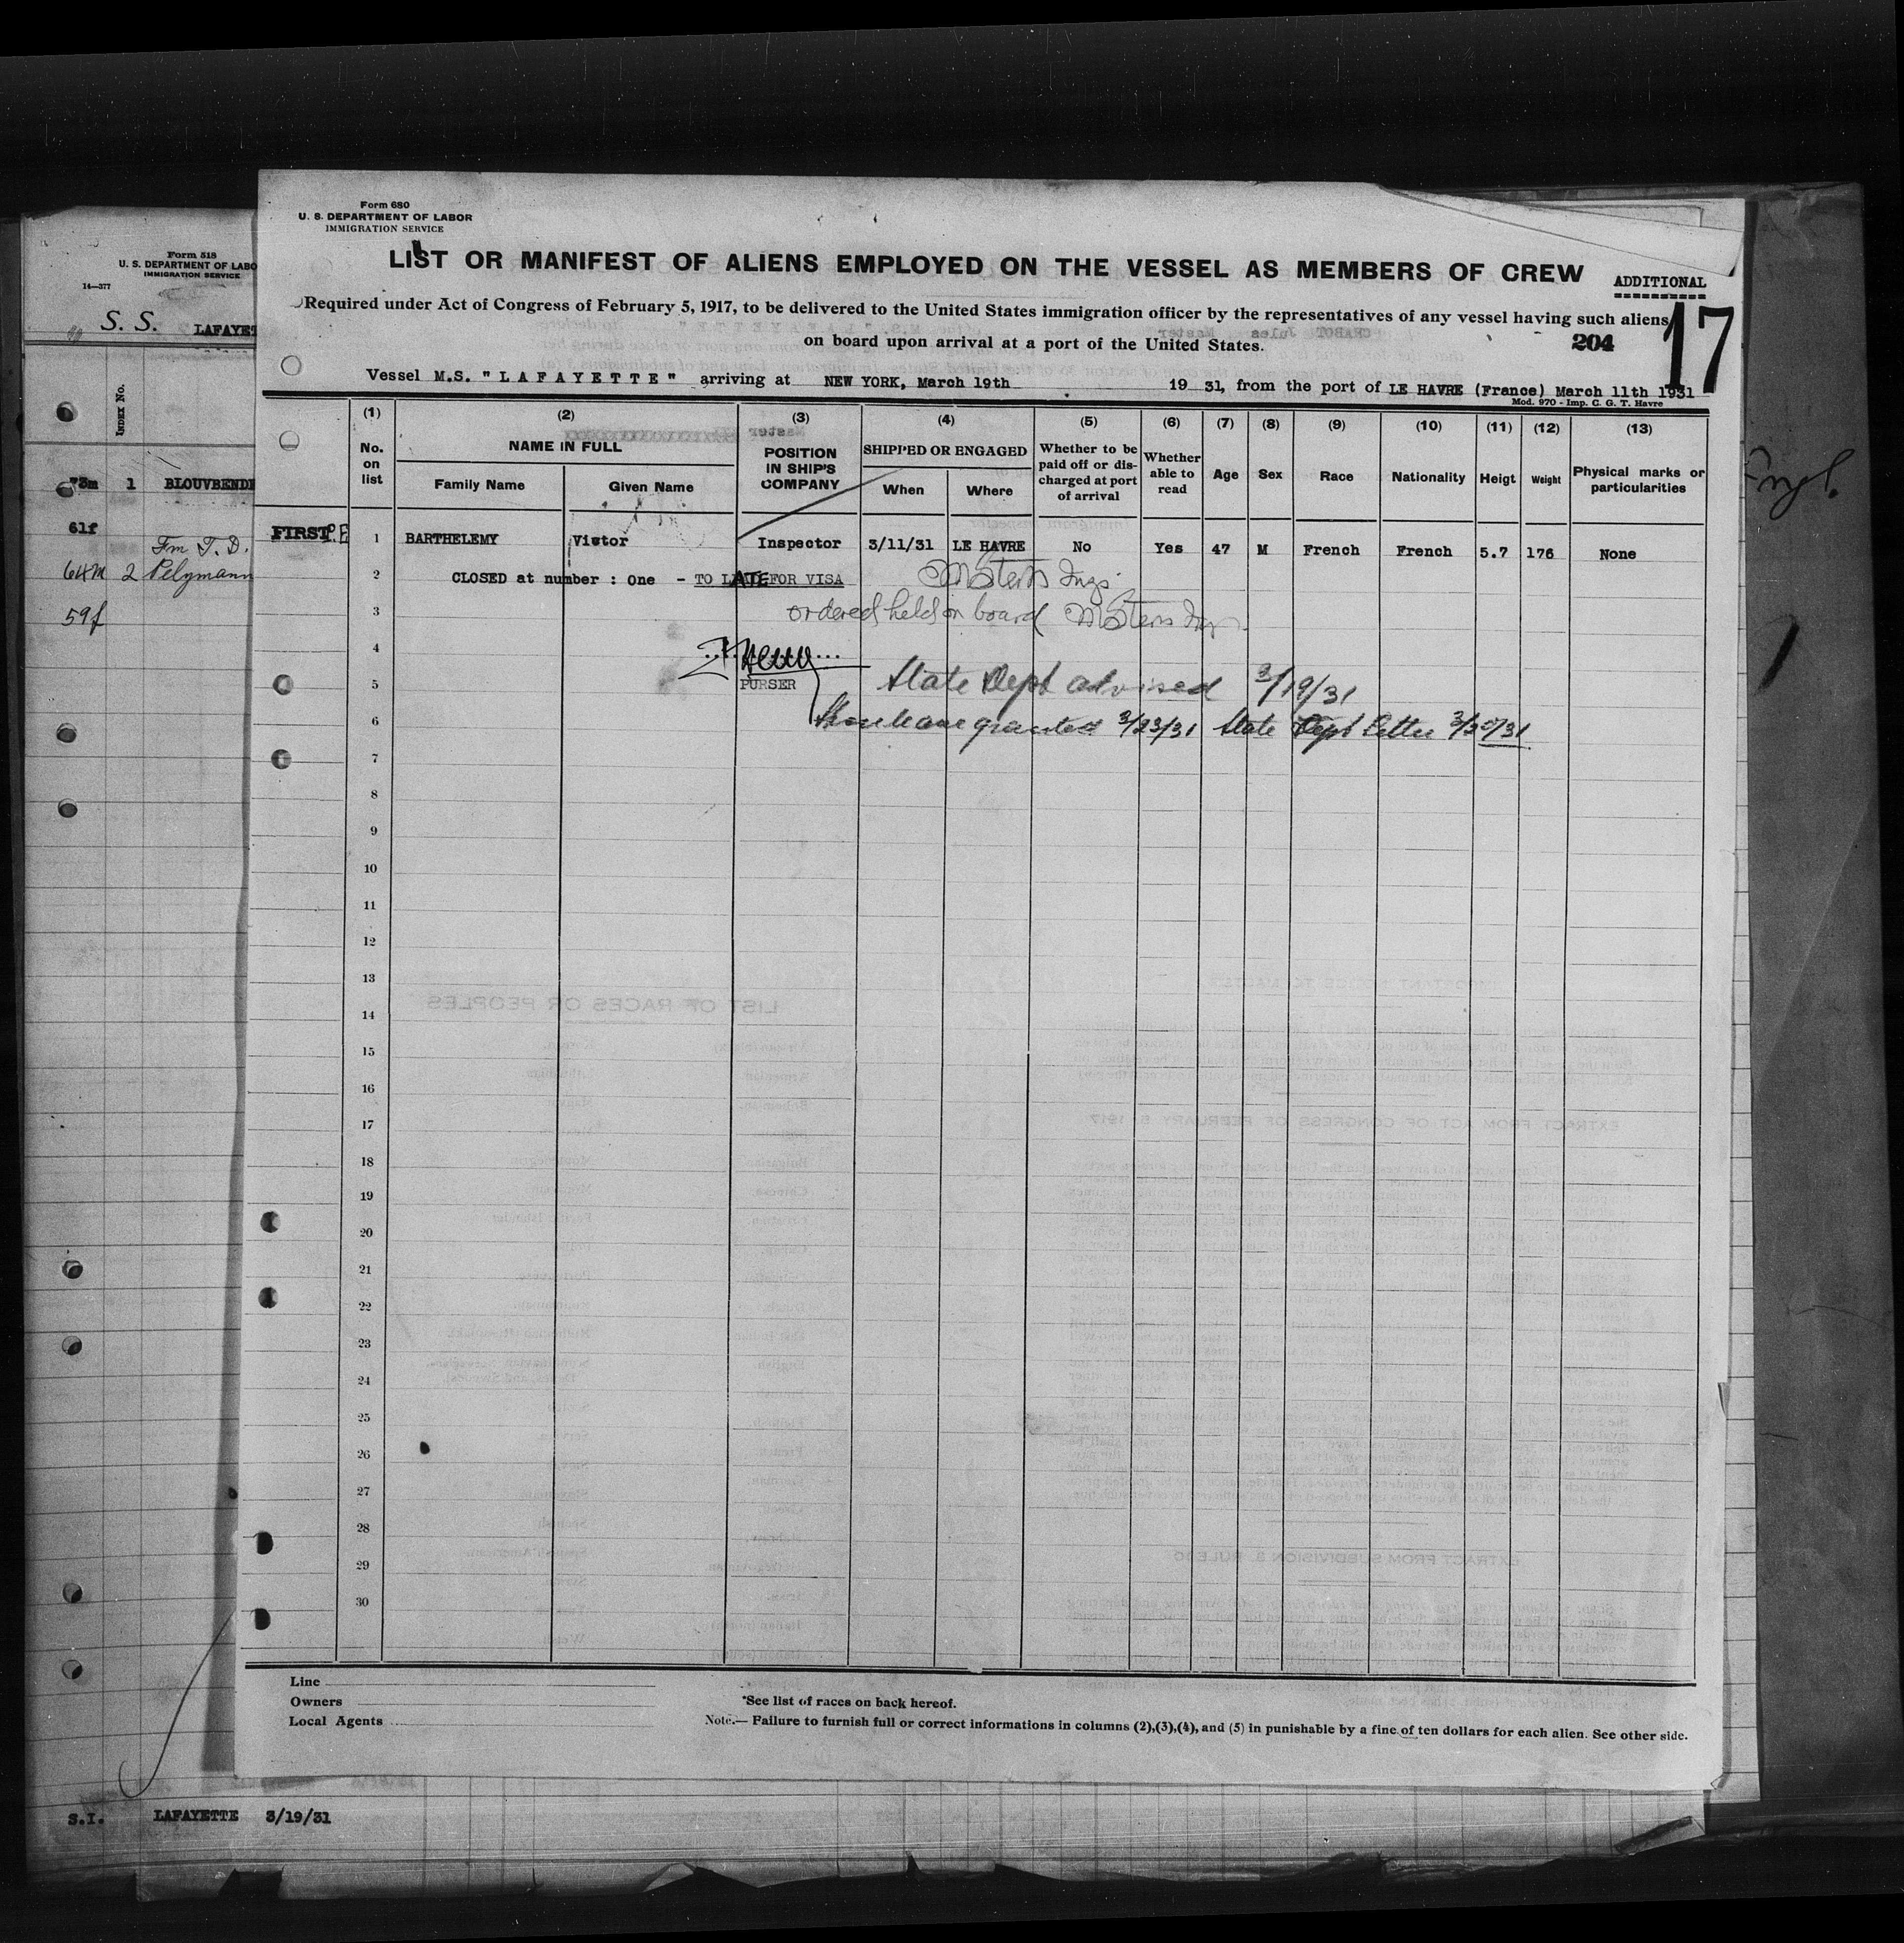 Form 518
U. S. DEPARTMENT OF LABO
IMMIGRATION SERVICE
14—377
S. S. LAFAYET
INDEX No.
73m 1 BLOUVBENDE
61f
Fm T. D.
64m 2 Pelymann
59f
S.I. LAFAYETTE 3/19/31
Form 680
U. S. DEPARTMENT OF LABOR
IMMIGRATION SERVICE
LIST OR MANIFEST OF ALIENS EMPLOYED ON THE VESSEL AS MEMBERS OF CREW
ADDITIONAL
Required under Act of Congress of February 5, 1917, to be delivered to the United States immigration officer by the representatives of any vessel having such aliens
on board upon arrival at a port of the United States.
204
17
Vessel M.S. "LAFAYETTE" arriving at NEW YORK, March 19th 19 31, from the port of LE HAVRE (France) March 11th 1931
Mod. 970 - Imp. C. G. T. Havre
(1) (2) (3) (4) (5) (6) (7) (8) (9) (10) (11) (12) (13)
No. on list
NAME IN FULL
Family Name
Given Name
POSITION IN SHIP'S COMPANY
SHIPPED OR ENGAGED
When
Where
Whether to be paid off or dis-charged at port of arrival
Whether able to read
Age
Sex
Race
Nationality
Heigt
Weight
Physical marks or particularities
FIRST
1 BARTHELEMY Victor Inspector 3/11/31 LE HAVRE No Yes 47 M French French 5.7 176 None
2 CLOSED at number : One - TO LATE FOR VISA M Stern Insp.
3 ordered held on board M Stern Insp
4
5 PURSER State Dept advised 3/19/31
6 Shore leave granted 3/23/31 State Dept letter 3/20/31
7
8
9
10
11
12
13
14
15
16
17
18
19
20
21
22
23
24
25
26
27
28
29
30
Line
Owners
Local Agents
*See list of races on back hereof.
Note.— Failure to furnish full or correct informations in columns (2),(3),(4), and (5) in punishable by a fine of ten dollars for each alien. See other side.